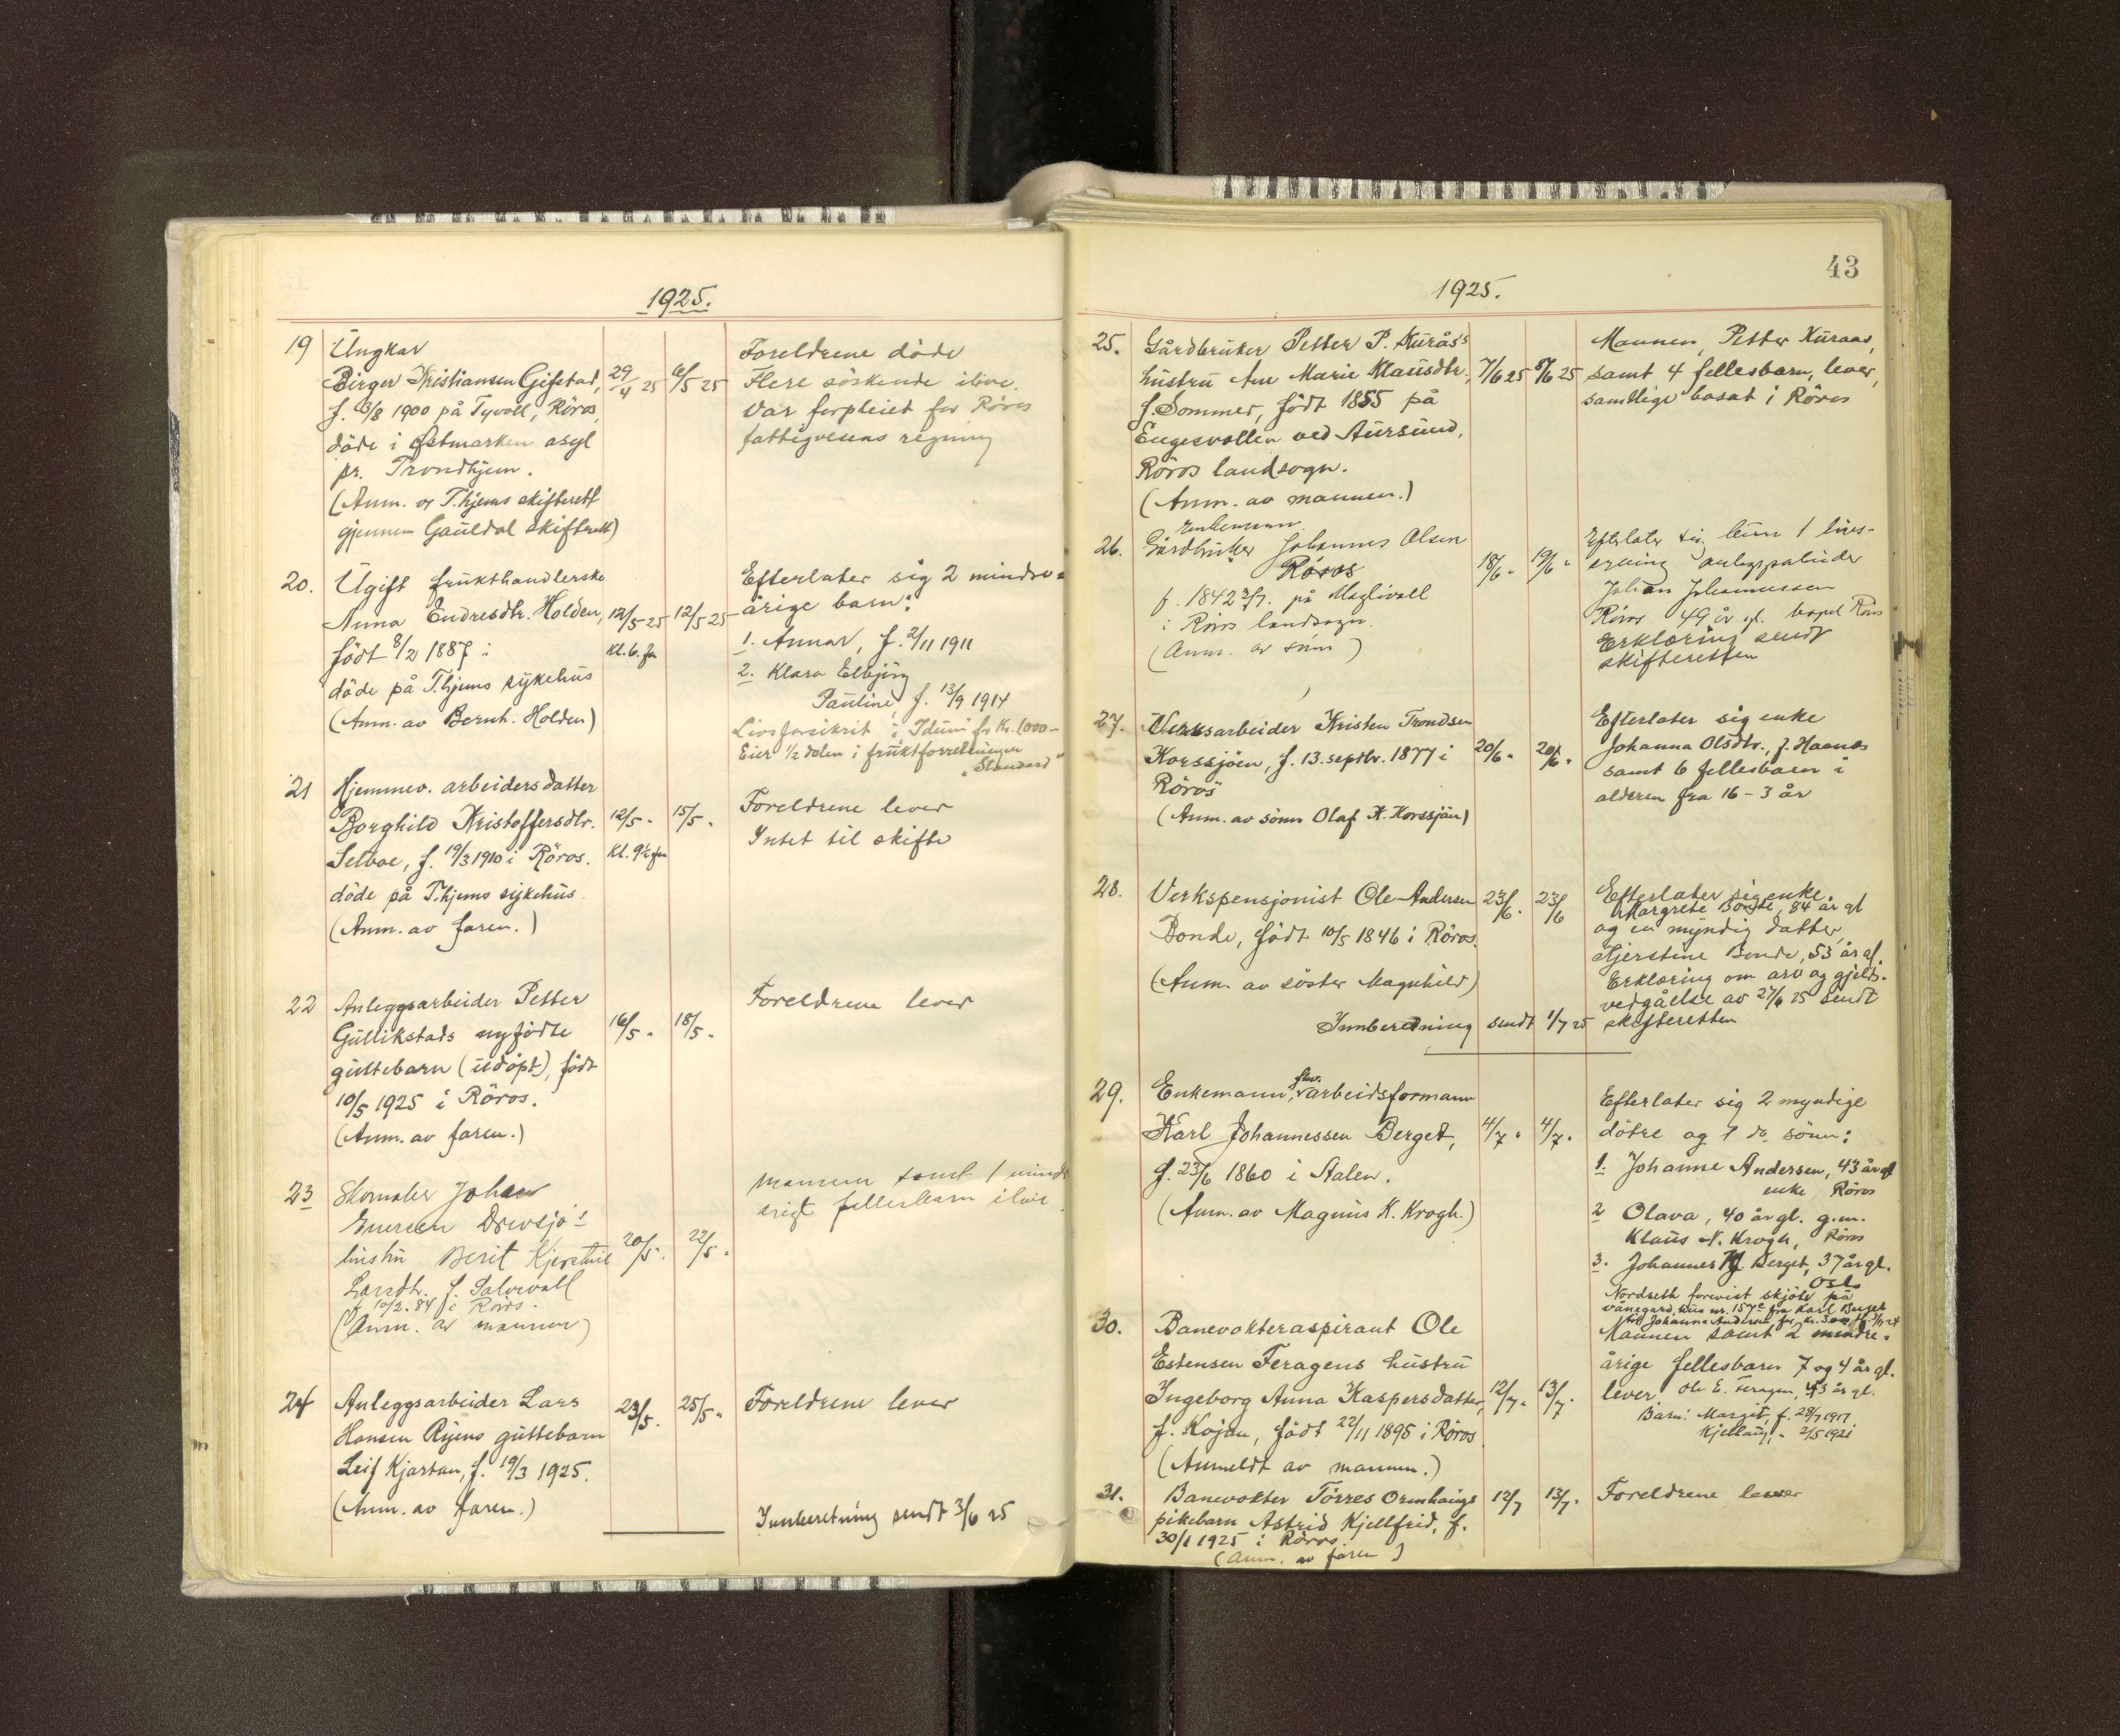 1925.
19 Ungkar
Birger Kristiansen Gifstad, 29/4 25 6/5 25
f. 3/8 1900 på Tyvoll, Röros,
döde i Østmarken asyl
pr. Trondhjem.
(Anm. av T.hjems skifterett
gjennem Gauldal skifterett)
Foreldrene döde
Flere söskende ilive.
Var forpleiet for Röros
fattigvesens regning
20. Ugift frukthandlerske
Anna Endresdtr. Holden, 12/5-25 12/5 25
født 8/2 1887 i
kl. 6. fm
döde på T.hjems sykehus
(Anm. av Bernh. Holden)
Efterlater sig 2 mindre-
årige barn:
1. Annar, f. 2/11 1911
2. Klara Elbjörg
Pauline, f. 13/9 1914
Livsforsikrit i "Idun" for Kr. 1000-
Eier 1/2 delen i fruktforretningen
"Standard"
21 Hjemmev. arbeiders datter
Borghild Kristoffersdtr. 12/5 - 15/5 -
Selboe, f. 19/3 1910 i Röros. Kl. 9 1/2 fm
döde på T.hjems sykehus
(Anm. av faren.)
Foreldrene lever
Intet til skifte
22 Anleggsarbeider Petter
Gullikstads nyfödte 16/5 - 18/5 -
guttebarn (udöpt), født
10/5 1925 i Röros.
(Anm. av faren.)
Foreldrene lever
23 Skomaker Johan
Enersen Drevsjö's
hustru Berit Kjerstine 20/5 - 22/5 -
Larsdtr. f. Galåvoll
f 10/2. 84 i Röros.
(Anm. av mannen)
Mannen samt 1 mindre
årigt fellesbarn ilive
24 Anleggsarbeider Lars
Hansen Ryens guttebarn 23/5 - 25/5 -
Leif Kjartan, f. 19/3 1925.
(Anm. av faren.)
Foreldrene lever
Innberetning sendt 3/6 25
43
1925.
25. Gårdbruker Petter P. Kurås's
hustru Ane Marie Klausdtr., 7/6 25 8/6 25
f. Sommer, født 1855 på
Engesvollen ved Aursund,
Röros landsogn.
(Anm. av mannen.)
Mannen, Petter Kuraas,
samt 4 fellesbarn, lever,
samtlige bosat i Röros
Enkemann
26. Gårdbruker Johannes Olsen
Röros 18/6 - 19/6 -
f. 1842 3/7. på Maglivoll
i Röros landsogn.
(Anm. av sönn)
Efterlater sig kun 1 livs-
arving anleggsarbeider
Johan Johannessen
Röros 49 år gl. bopel Röros
Erklæring sendt
skifteretten
27. Verksarbeider Kristen Trondsen
Korssjöen, f. 13. septbr. 1877 i 20/6 - 20/6 -
Röros
(Anm. av sönn Olaf K. Korssjön)
Efterlater sig enke
Johanna Olsdtr., f. Haanes
samt 6 fellesbarn i
alderen fra 16 - 3 år
28. Verkspensjonist Ole Andersen 23/6 - 23/6
Bonde, født 10/5 1846 i Röros.
(Anm. av söster Magnhild)
Efterlater sig enke.
Margrete Bonde, 84 år gl
og en myndig datter,
Kjerstine Bonde, 53 år gl.
Erklæring om arv og gjelds-
vedgåelse av 27/6 25 sendt
skifteretten
Innberetning sendt 1/7 25
29. Enkemann, fhv. arbeidsformann
Karl Johannessen Berget, 4/7 - 4/7 -
f. 23/6 1860 i Aalen.
(Anm. av Magnus K. Krogh.)
Efterlater sig 2 myndige
döbre og 1 do. sönn:
1. Johanne Andersen, 43 år gl
enke Röros
2 Olava, 40 år gl. g.m.
Klaus N. Krogh, Röros
3. Johannes K. Berget, 37 år gl.
Oslo
Nordseth forevist skjöte på
vånegard, hus nr. 157c fra Karl Berget
til Johanna Andersen for kr.
30. Banevokteraspirant Ole
Estensen Feragens hustru
Ingeborg Anna Kaspersdatter, 12/7 - 13/7 -
f. Kojan, født 22/11 1895 i Röros
(Anmeldt av mannen.)
Mannen samt 2 mindre-
årige fellesbarn 7 og 4 år gl.
lever Ole E. Feragen, 43 år gl.
Barn: Margit, f. 28/7 1917
Kjellaug, - 2/5 1921
31. Banevokter Törres Ormhaugs 12/7 13/7 -
pikebarn Astrid Kjellfrid, f.
30/1 1925 i Röros.
(Anm. av faren)
Foreldrene lever